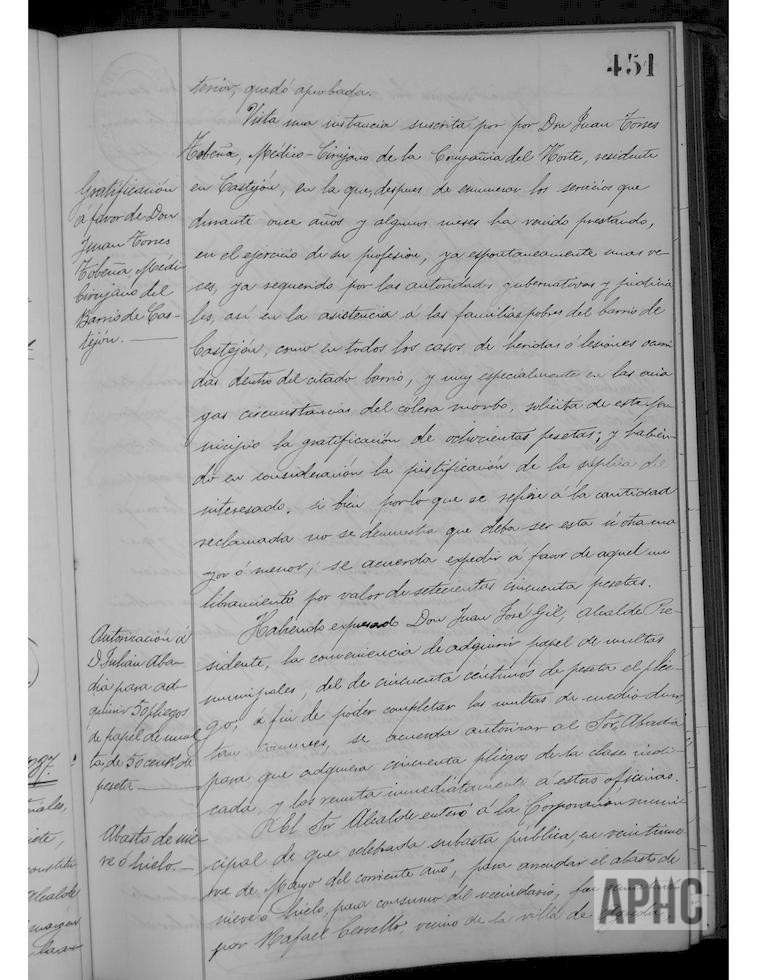 451
terior, quedó aprobada.
Vista una instancia suscrita por por Don Juan Torres
Tobeña, Médico-Cirujano de la Compañia del Norte, residente
en Castejón, en la que, despues de enumerar los servicios que
durante once años y algunos meses ha venido prestando,
en el ejercicio de su profesión, ya espontaneamente unas ve-
ces, ya requerido por las autoridades gubernativas y judicia
les, así en la asistencia á las familias pobres del barrio de
Castejón, como en todos los casos de heridas ó lesiones ocurri
das dentro del citado barrio, y muy especialmente en las acia
gas circunstancias del cólera morbo, solicita de este Mu
nicipio la gratificación de ochocientas pesetas; y habien-
do en consideración la justificación de la
interesado, si bien por lo que se refiere á la cantidad
reclamada no se demuestra que deba ser esta ú otra ma
yor ó menor; se acuerda expedir á favor de aquel un
libramiento por valor de setecientas cincuenta pesetas.
Habiendo expresado Don Juan José Gil, Alcalde Pre-
sidente, la conveniencia de adquirir papel de multas
municipales, del de cincuenta céntimos de peseta el plie-
go, á fin de poder completar las multas de medio duro,
tan comunes, se acuerda autorizar al Sor. Abadia
para que adquiera cincuenta pliegos de la clase indi-
cada, y los remita inmediatamente a estas oficinas.
El Sor Alcalde enteró á la Corporación muni-
cipal de que celebrada subasta pública, en veintinue
ve de Mayo del corriente año, para arrendar el abasto de
nieve o hielo, para consumo del vecindario,
por Rafael Cervetto, vecino de la villa de
Gratificación
á favor de Don
Juan Torres
Tobeña, Medi-
Cirujano del
Barrio de Cas-
tejón.
Autorización á
D. Julián Aba-
dia para ad-
quirir 50 pliegos
de papel de mul
ta, de 50 cents. de
peseta
Abasto de nie-
ve ó hielo.
Alcalde
APHC